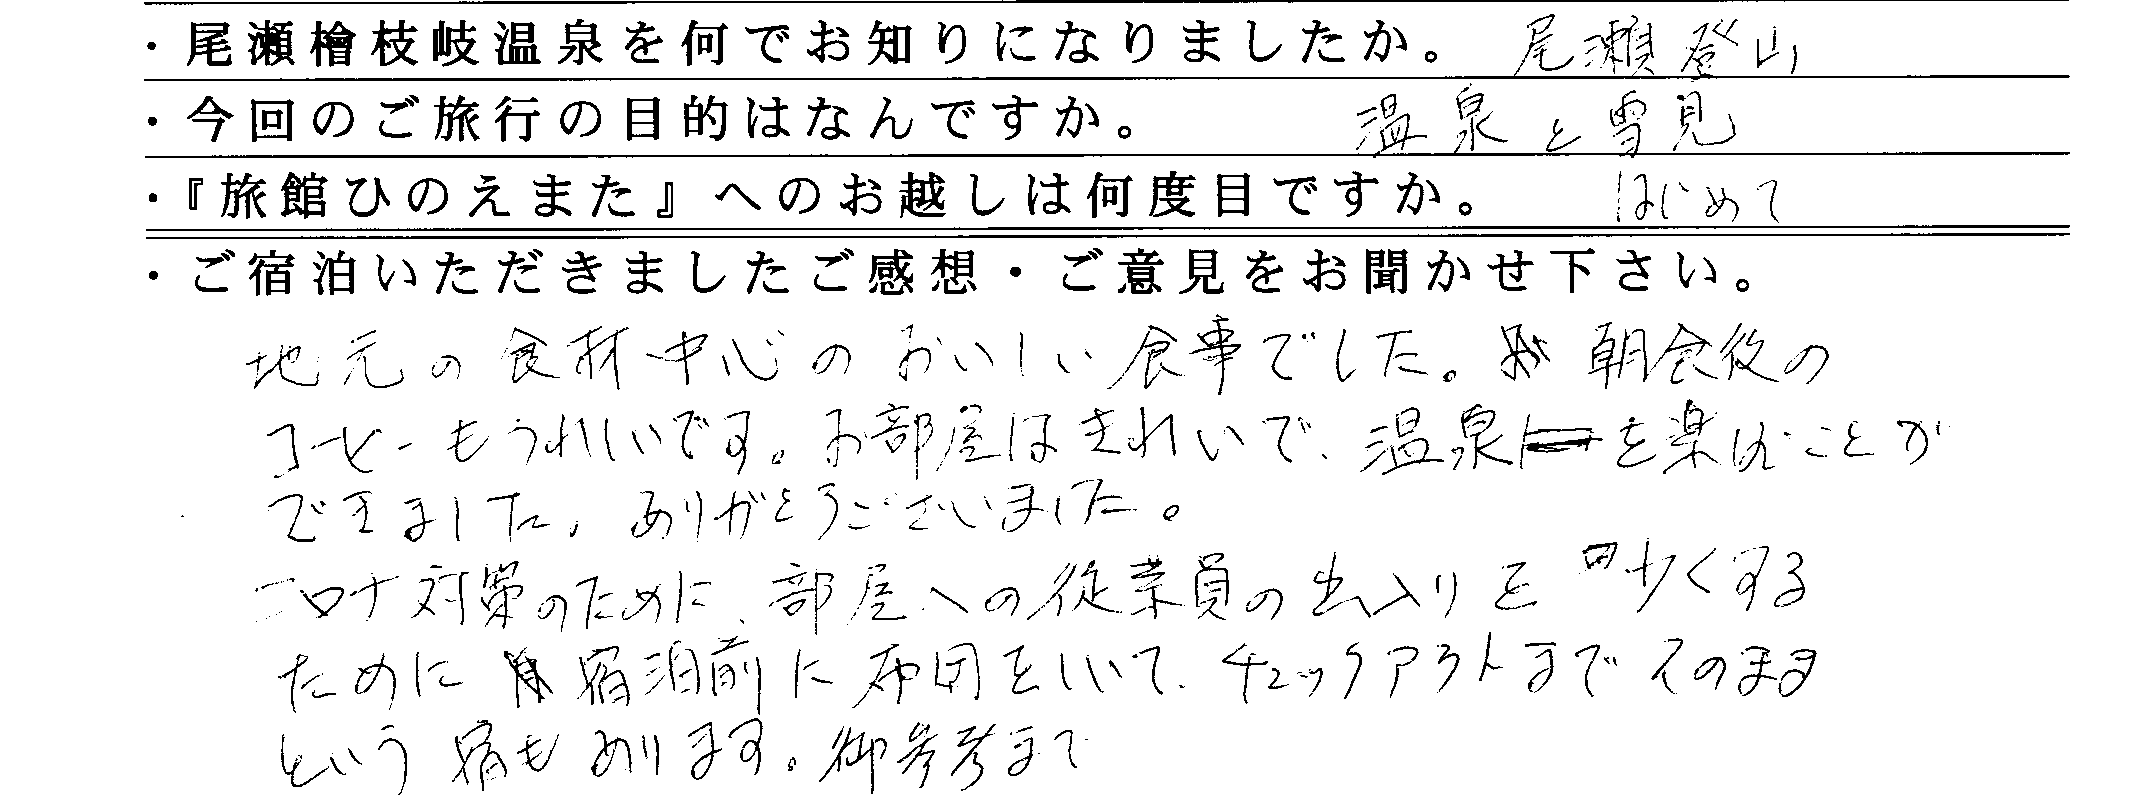 ・尾瀬檜枝岐温泉を何でお知りになりましたか。 尾瀬登山
・今回のご旅行の目的はなんですか。 温泉と雪見
・『旅館ひのえまた』へのお越しは何度目ですか。 はじめて
・ご宿泊いただきましたご感想・ご意見をお聞かせ下さい。
地元の食材中心のおいしい食事でした。朝食後の
コーヒーもうれしいです。お部屋はきれいで、温泉を楽しむことが
できました。ありがとうございました。
コロナ対策のために、部屋への従業員の出入りを少くする
ために宿泊前に布団をしいて、チェックアウトまでそのまま
という宿もあります。御参考まで